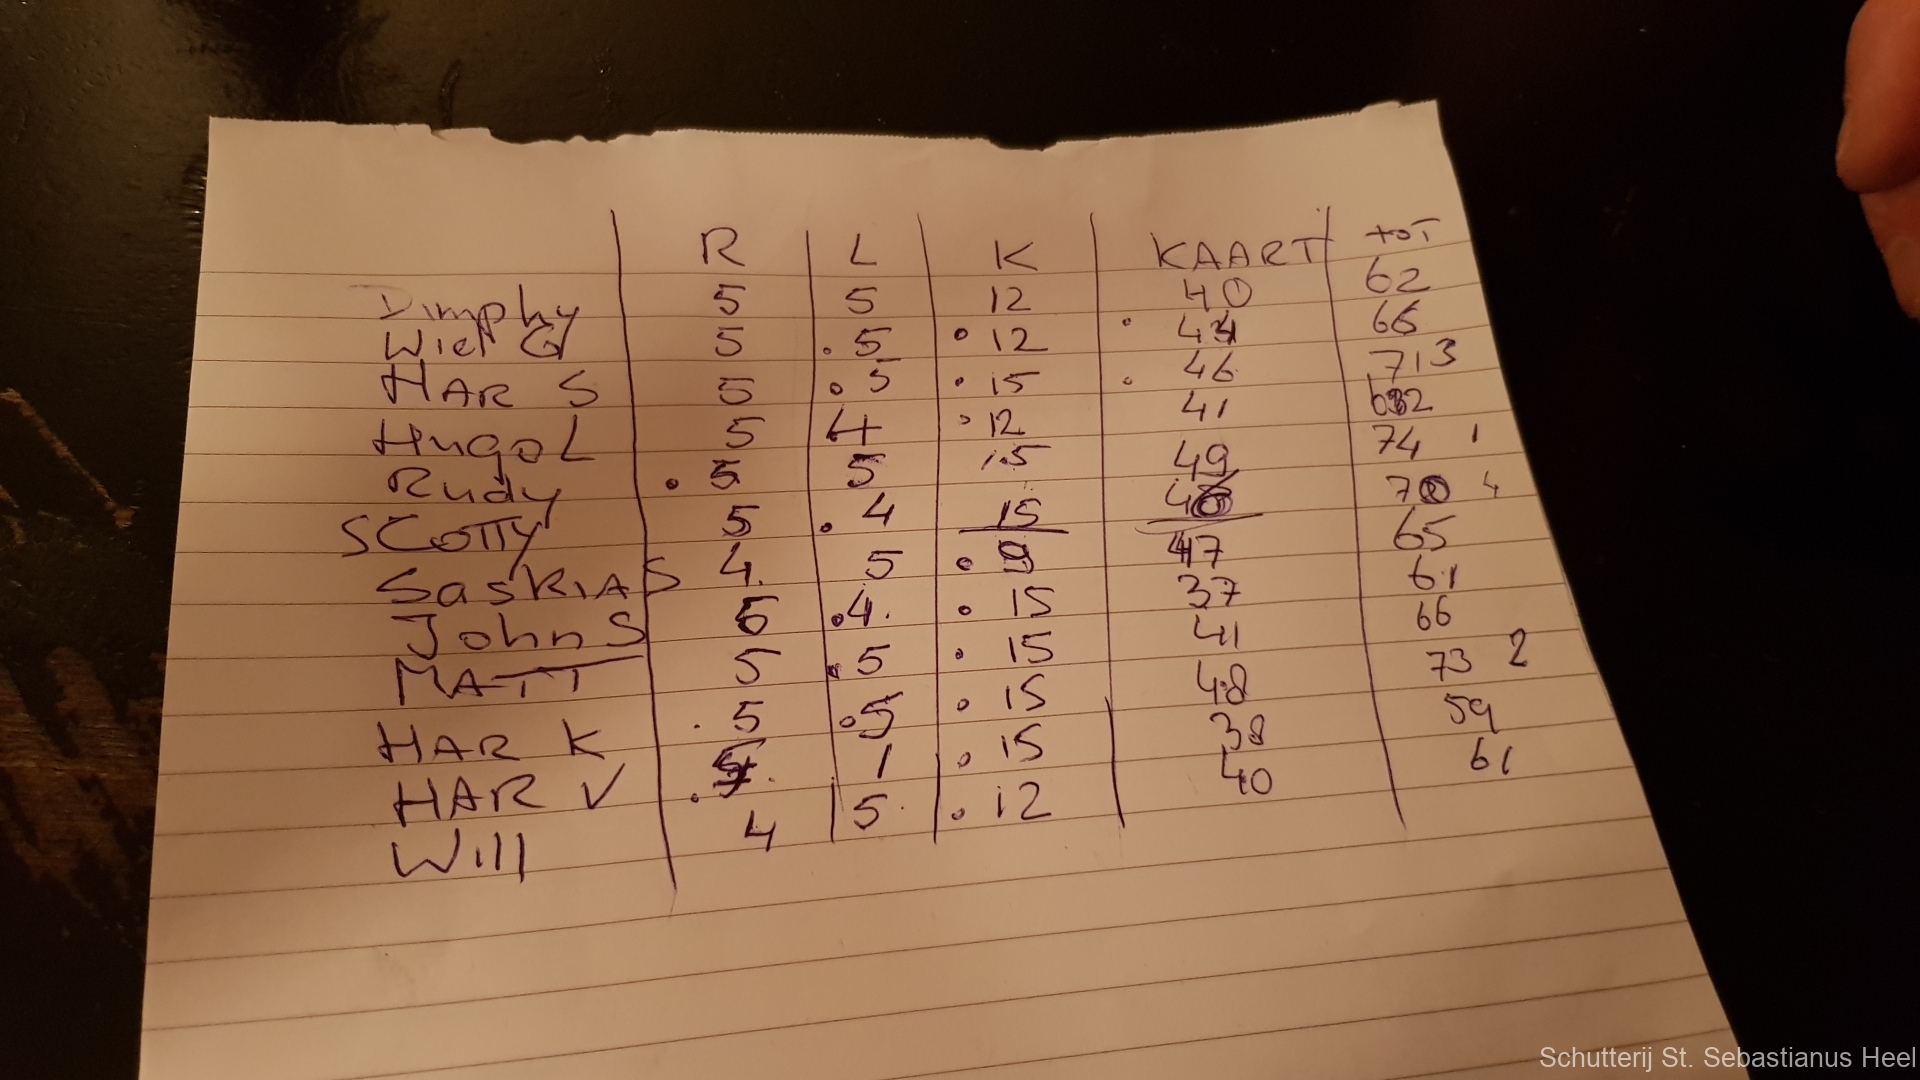 R L K KAART tot
Dimphy 5 5 12 40 62
Wiel G 5 . 5 . 12 . 44 66
HAR S 5 . 5 . 15 . 46 71 3
Hugo L 5 4 . 12 41 62
Rudy . 5 5 15 49 74 1
SCOTTY 5 . 4 15 46 70 4
SASKIA S 4 5 . 9 47 65
John S 5 . 4 . 15 37 61
MATT 5 . 5 . 15 41 66
HAR K . 5 . 5 . 15 48 73 2
HAR V . 1 . 15 38 59
Will 4 5 . 12 40 61
Schutterij St. Sebastianus Heel